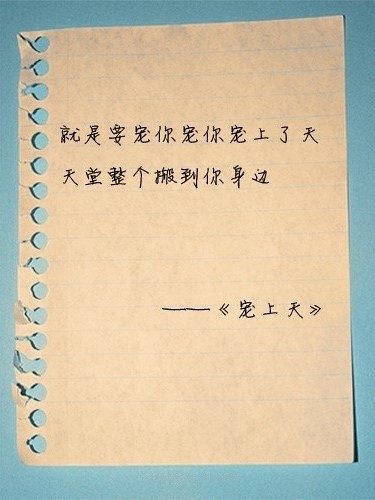 就是要宠你宠你宠上了天
天堂整个搬到你身边
——《宠上天》